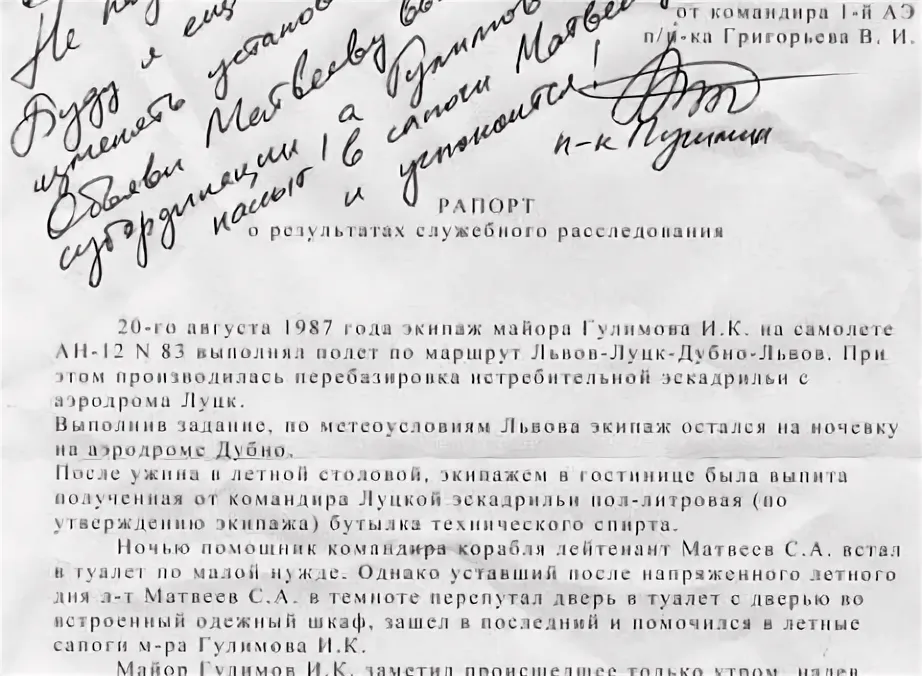 Не
Буду я ещё
изменять
Объяви Матвееву
субординации, а Гулимов
нассыт в сапоги Матвееву
и успокоится!
п-к Пучинин
от командира 1-й АЭ
п/п-ка Григорьева В. И.
РАПОРТ
о результатах служебного расследования
20-го августа 1987 года экипаж майора Гулимова И.К. на самолете
АН-12 N 83 выполнял полет по маршрут Львов-Луцк-Дубно-Львов. При
этом производилась перебазировка истребительной эскадрильи с
аэродрома Луцк.
Выполнив задание, по метеоусловиям Львова экипаж остался на ночевку
на аэродроме Дубно.
После ужина в летной столовой, экипажем в гостинице была выпита
полученная от командира Луцкой эскадрильи пол-литровая (по
утверждению экипажа) бутылка технического спирта.
Ночью помощник командира корабля лейтенант Матвеев С.А. встал
в туалет по малой нужде. Однако уставший после напряженного летного
дня л-т Матвеев С.А. в темноте перепутал дверь в туалет с дверью во
встроенный одежный шкаф, зашел в последний и помочился в летные
сапоги м-ра Гулимова И.К.
Майор Гулимов И.К. заметил происшедшее только утром, надев